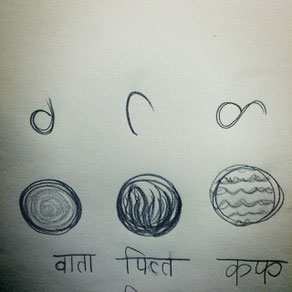 वाता पित्त कफ